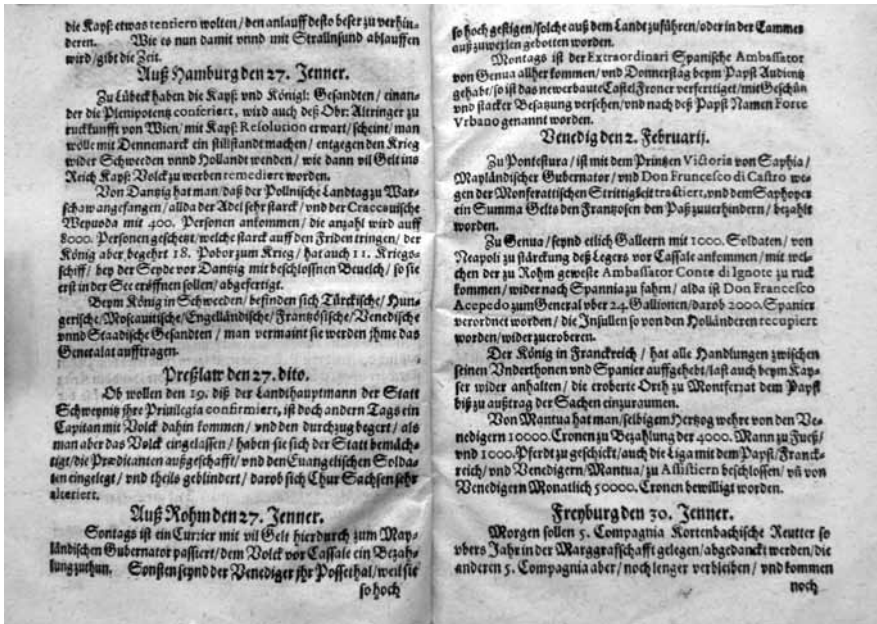 die Kays: etwas tentiern wolten / den anlauff desto besser zu verhin-
deren. Wie es nun damit vnnd mit Strallnsund ablauffen
wird / gibt die Zeit.
Auß Hamburg den 27. Jenner.
Zu Lübeck haben die Kays: vnd Königl: Gesandten / einan-
der die Plenipotentz conferiert, wird auch deß Obr: Altringer zu
ruckkunfft von Wien / mit Kays: Resolution erwart / scheint / man
wölle mit Dennemarck ein stillstandt machen / entgegen den Krieg
wider Schweeden vnnd Hollandt wenden / wie dann vil Gelt ins
Reich Kays: Volck zu werben remediert worden.
Von Dantzig hat man / daß der Pollnische Landtag zu War-
schaw angefangen / allda der Adel sehr starck / vnd der Craccauische
Weyuoda mit 400. Personen ankommen / die anzahl wird auff
8000. Personen geschetzt / welche starck auff den Friden tringen / der
König aber begehrt 18. Pobor zum Krieg / hat auch 11. Kriegs-
schiff / bey der Seyde vor Dantzig mit beschloßnen Beuelch / so sie
erst in der See eröffnen sollen / abgefertigt.
Beym König in Schweeden / befinden sich Türckische / Hun-
gerische / Moscauitische / Engelländische / Frantzösische / Venedische
vnnd Staadische Gesandten / man vermaint sie werden jhme das
Generalat aufftragen.
Preßlaw den 27. dito.
Ob wollen den 19. diß der Landthauptmann der Statt
Schweynitz jhre Priuilegia confirmiert, ist doch andern Tags ein
Capitan mit Volck dahin kommen / vnd den durchzug begert / als
man aber das Volck eingelassen / haben sie sich der Statt bemäch-
tigt / die Prædicanten außgeschafft / vnd den Euangelischen Solda-
ten eingelegt / vnd theils geblindert / darob sich Chur Sachsen sehr
alteriert.
Auß Rohm den 27. Jenner.
Sontags ist ein Currier mit vil Gelt hierdurch zum May-
ländischen Gubernator passiert / dem Volck vor Cassale ein Bezah-
lung zuthun. Sonsten seynd der Venediger jhr Posset hal / weil sie
so hoch
so hoch gestigen / solche auß dem Landt zuführen / oder in der Cammer
außzuwexlen gebotten worden.
Montags ist der Extraordinari Spanische Ambassator
von Genua allher kommen / vnd Donnerstag beym Papst Audientz
gehabt / so ist das newerbaute Castel Froner verfertiget / mit Geschütz
vnd starcker Besatzung versehen / vnd nach deß Papst Namen Forte
Vrbano genannt worden.
Venedig den 2. Februarij.
Zu Pontestura / ist mit dem Printzen Victoria von Saphia /
Mayländischer Gubernator / vnd Don Francesco di Castro we-
gen der Monferattischen Strittigkeit tractiert, vnd dem Saphoyer
ein Summa Gelts den Frantzosen den Paß zuuerhindern / bezahlt
worden.
Zu Genua / seynd etlich Galleern mit 1000. Soldaten / von
Neapoli zu stärckung deß Legers vor Cassale ankommen / mit wel-
chen der zu Rohm geweste Ambassator Conte di Ignote zu ruck
kommen / wider nach Spannia zu fahren / alda ist Don Francesco
Acepedo zum General vber 24. Gallionen / darob 2000. Spanier
verordnet worden / die Insullen so von den Holländeren recupiert
worden / wider zueroberen.
Der König in Franckreich / hat alle Handlungen zwischen
seinen Vnderthonen vnd Spanier auffgehebt / last auch beym Kay-
ser wider anhalten / die eroberte Orth zu Montferrat dem Papst
biß zu außtrag der Sachen einzuraumen.
Von Mantua hat man / selbigem Hertzog wehre von den Ve-
nedigern 10000. Cronen zu Bezahlung der 4000. Mann zu Fueß /
vnd 1000. Pferdt zu geschickt / auch die Liga mit dem Papst / Franck-
reich / vnd Venedigern / Mantua / zu Assistiern beschlossen / vñ von
Venedigern Monatlich 50000. Cronen bewilligt worden.
Freyburg den 30. Jenner.
Morgen sollen 5. Compagnia Kortenbachische Reutter so
vbers Jahr in der Marggraffschafft gelegen / abgedanckt werden / die
anderen 5. Compagnia aber / noch lenger verbleiben / vnd kommen
noch